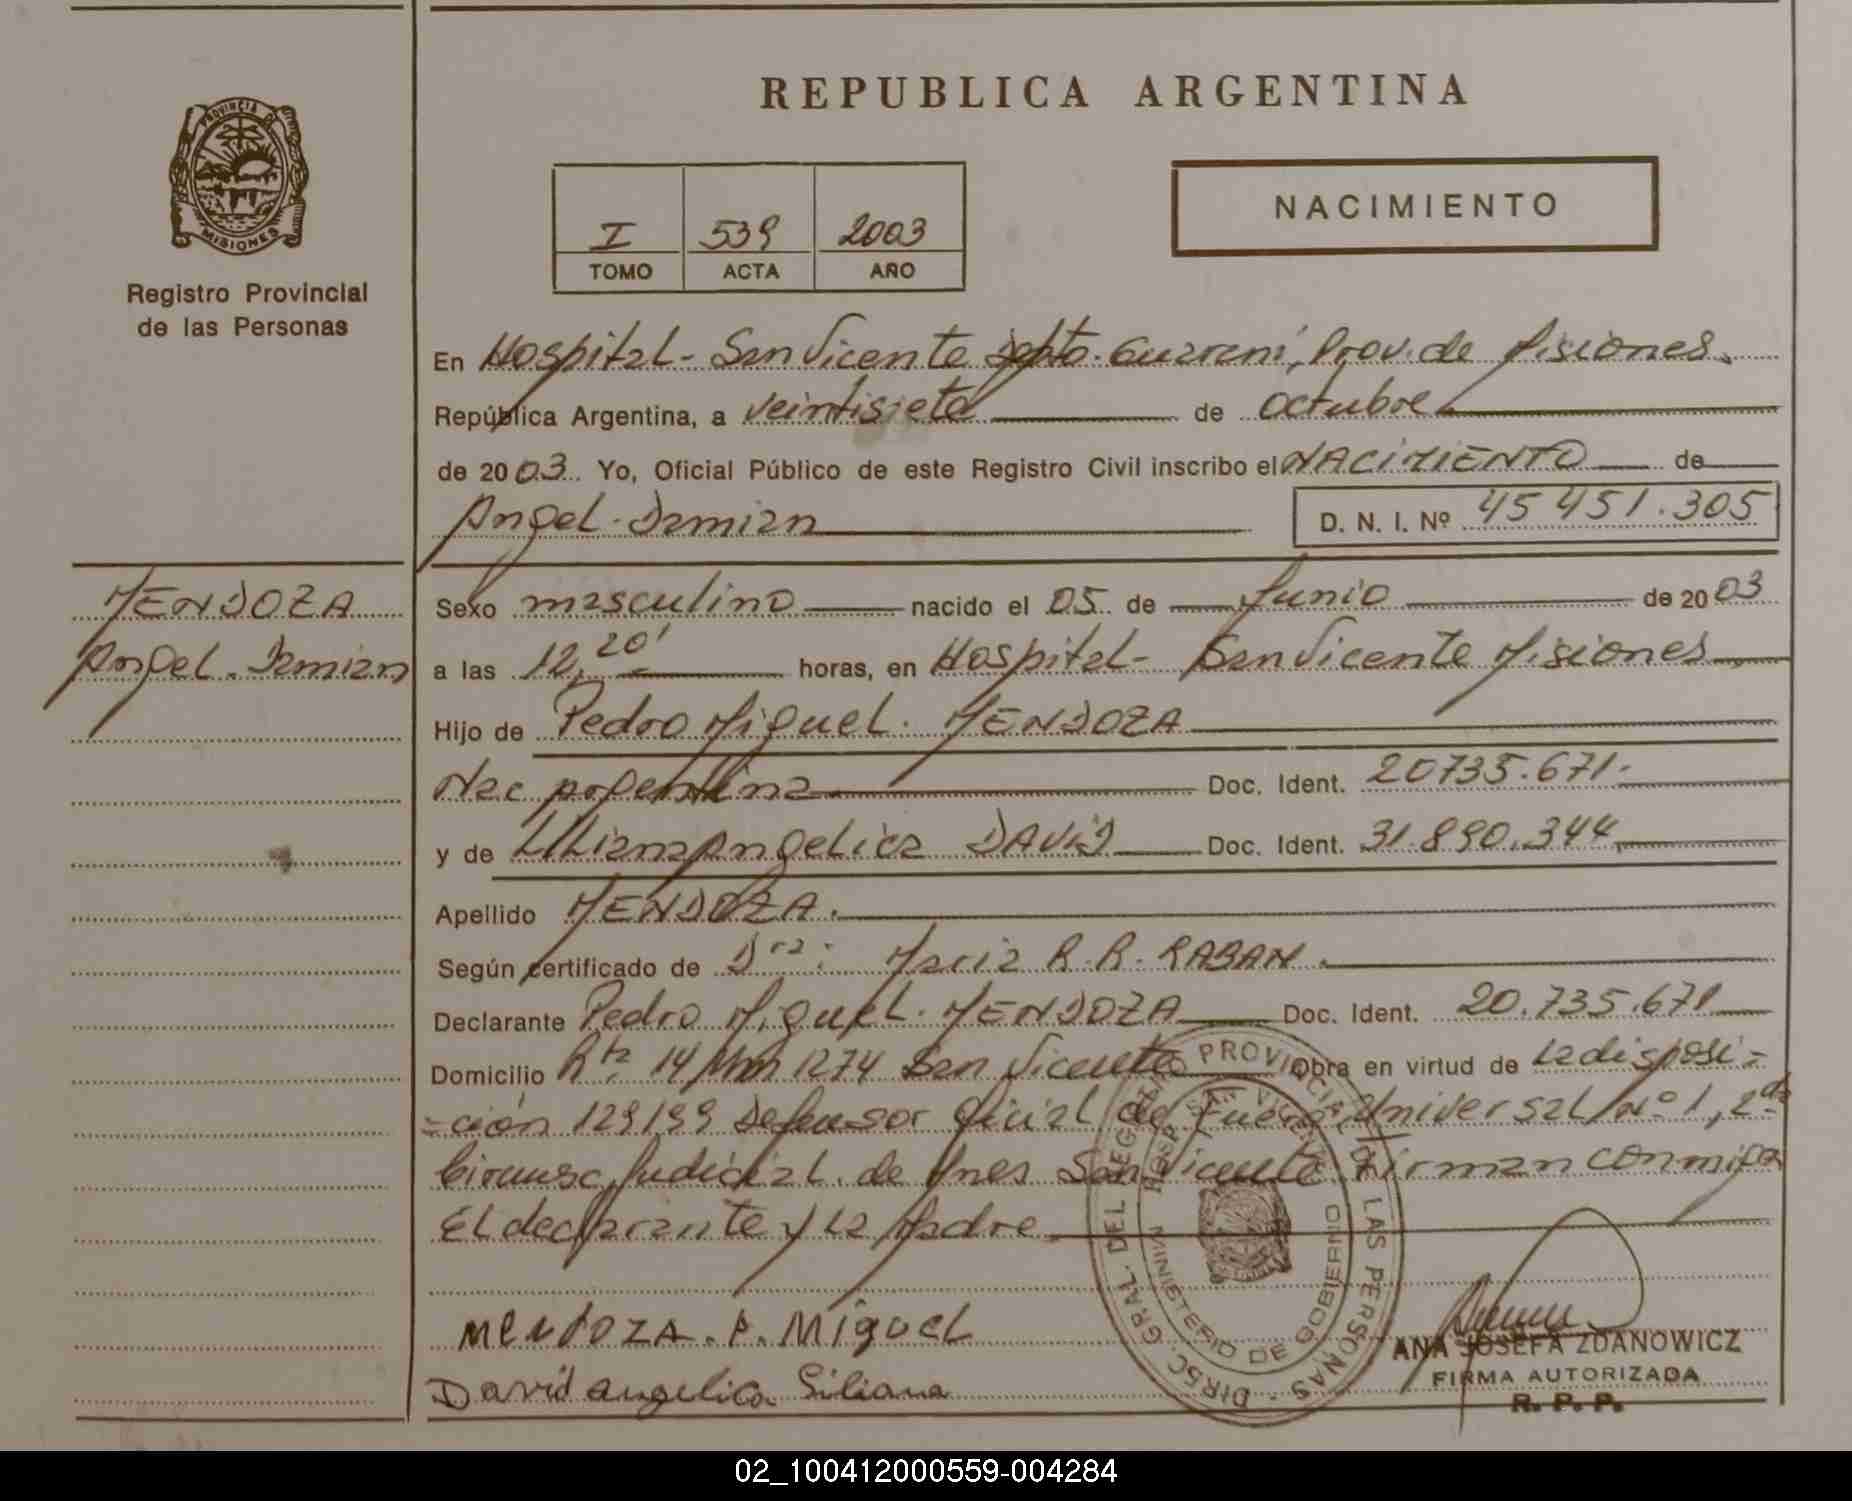 REPUBLICA ARGENTINA
PROVINCIA DE
MISIONES
Registro Provincial
de las Personas
I 539 2003
TOMO ACTA AÑO
NACIMIENTO
En Hospital - San Vicente Dpto. Guarani, Prov. de Misiones.
República Argentina, a veintisiete de octubre
de 2003. Yo, Oficial Público de este Registro Civil inscribo el NACIMIENTO de
Angel Damian D. N. I. Nº 45 451.305
MENDOZA
Angel Damian
Sexo masculino nacido el 05 de Junio de 2003
a las 12,20' horas, en Hospital - San Vicente Misiones
Hijo de Pedro Miguel MENDOZA
Nac Argentina Doc. Ident. 20735.671.
y de Liliana Angelica DAVID Doc. Ident. 31.890.344
Apellido MENDOZA.
Según certificado de Dra: Maria R. R. RABAN.
Declarante Pedro Miguel MENDOZA Doc. Ident. 20.735.671
Domicilio Rta 14 Km 1274 San Vicente Obra en virtud de la disposi=
=ción 129199 Defensor oficial de Fuero Universal Nº 1, 2da
Circunsc Judicial de Mnes San Vicente Firman conmigo
El declarante y La Madre
MENDOZA. P. MIGUEL
David Angelica Liliana
DIREC. GRAL. DEL REGISTRO PROVINCIAL DE LAS PERSONAS
HOSP. SAN VICENTE
MINISTERIO DE GOBIERNO
ANA JOSEFA ZDANOWICZ
FIRMA AUTORIZADA
R. P. P.
02_100412000559-004284